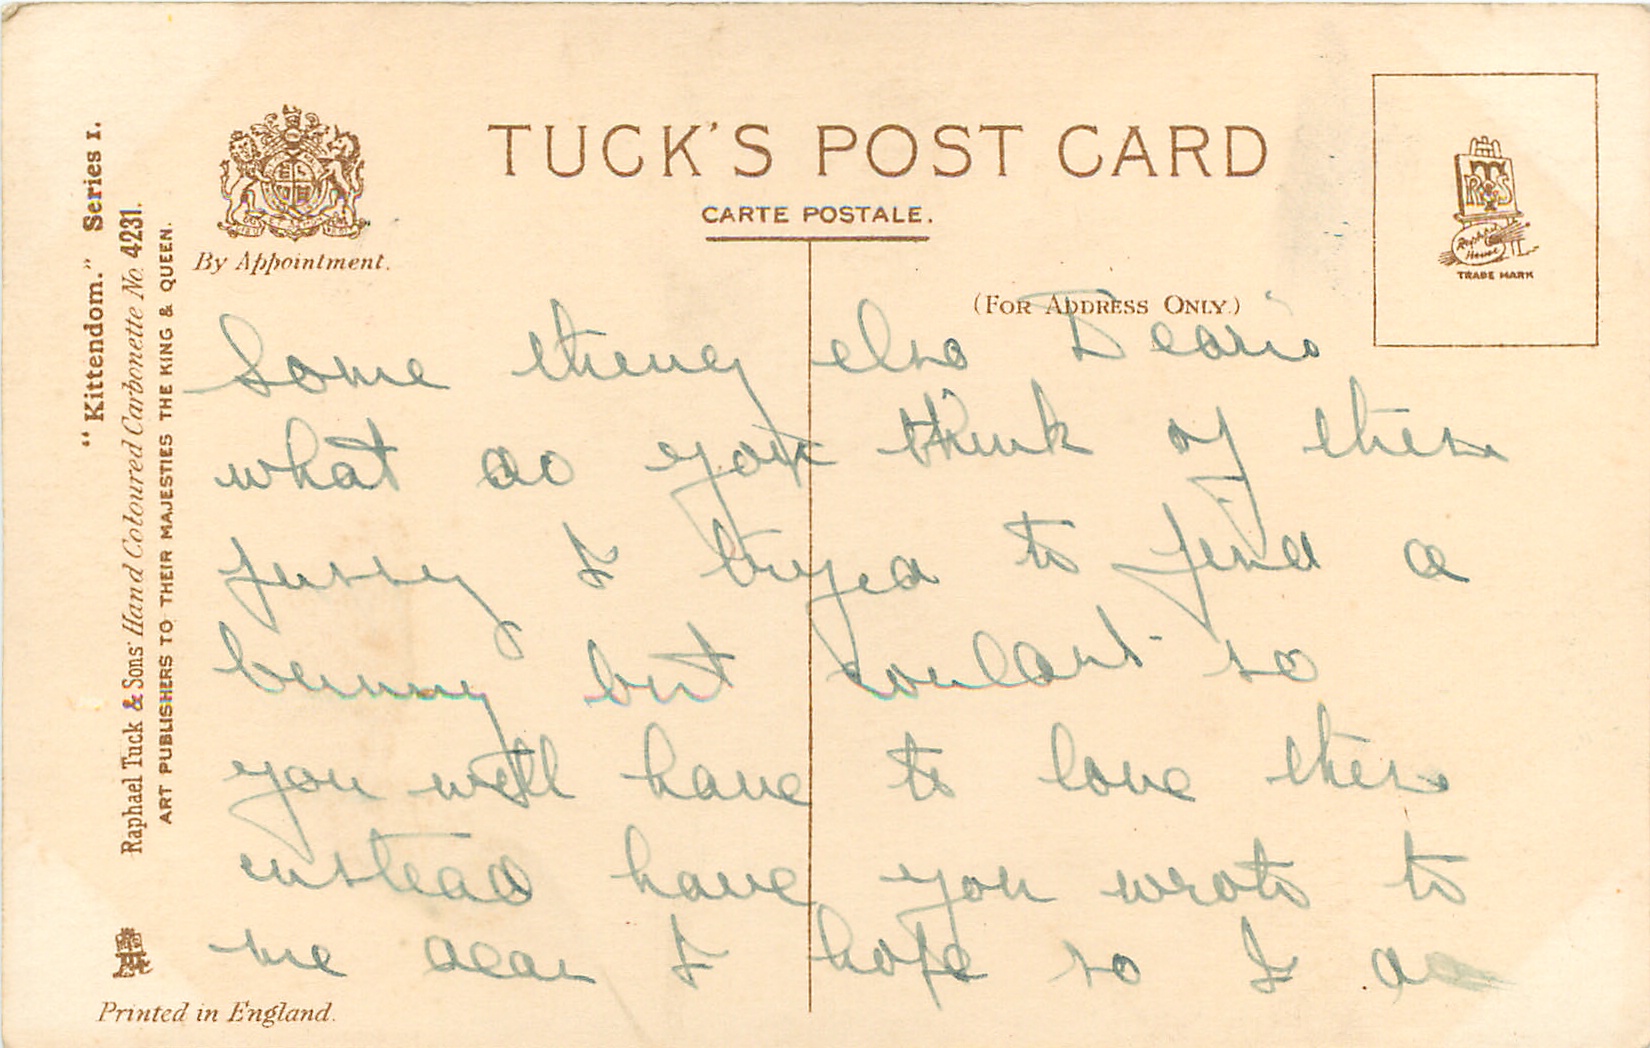 "Kittendom." Series I.
Raphael Tuck & Sons' Hand Coloured Carbonette No. 4231.
ART PUBLISHERS TO THEIR MAJESTIES THE KING & QUEEN.
By Appointment.
TUCK'S POST CARD
CARTE POSTALE.
(FOR ADDRESS ONLY.)
RTS
Raphael House
TRADE MARK
Some thing else Dearie
what do you think of these
pussy I tryed to find a
bunny but couldnt so
you will have to love these
instead have you wrote to
me dear I hope so I do
Printed in England.